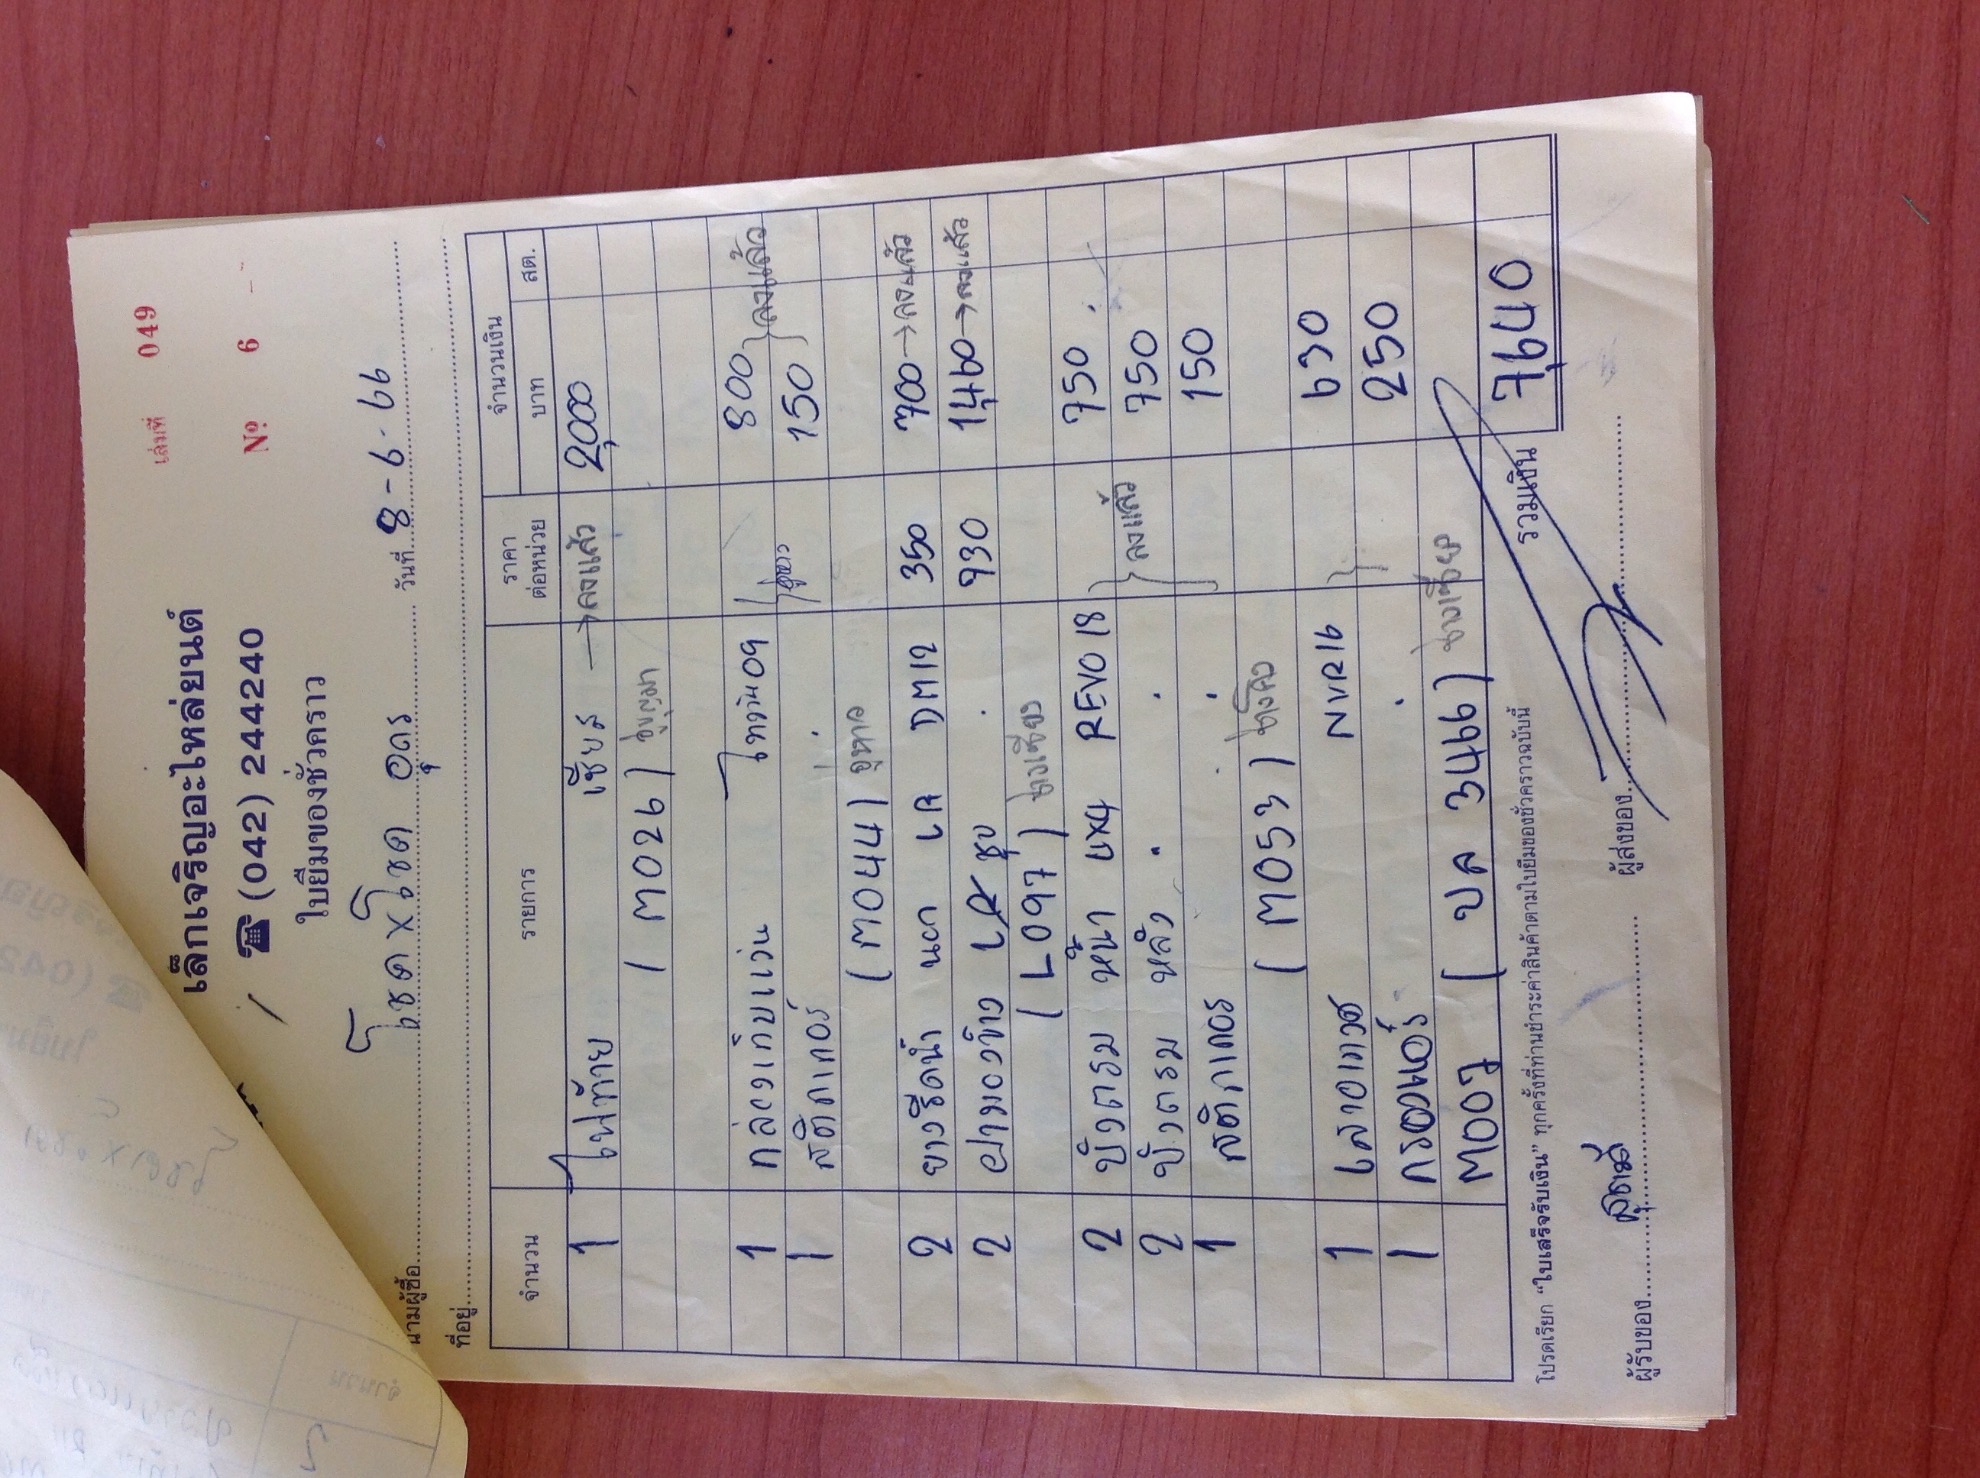 เล่มที่ 049
№ 6
เล็กเจริญอะไหล่ยนต์
☎ (042) 244240
ใบยืมของชั่วคราว
นามผู้ซื้อ โชค X โชค อุดร วันที่ 8-6-66
ที่อยู่
จำนวน รายการ ราคาต่อหน่วย จำนวนเงิน
บาท สต.
1 ไฟท้าย เซียร →ลงแล้ว 2,000
(M026)
1 กล่องเก็บแว่น ไทวิน09 800 ลงแล้ว
1 สติกเกอร์ 150
(M044)
2 ยางรีดน้ำ นอก LR DM12 350 700→ลงแล้ว
2 ฝามองข้าง LR ชุบ 930 1,460→ลงแล้ว
(L097)
2 บังตรม หน้า 4X4 REVO 18 750
2 บังตรม หลัง 750 ลงแล้ว
1 สติกเกอร์ 150
(M053)
1 เสาอากาศ NVR16 630
1 กรอง 250
M007 (บล 3466)
รวมเงิน 7,640
โปรดเรียก "ใบเสร็จรับเงิน" ทุกครั้งที่ท่านชำระค่าสินค้าตามใบยืมของชั่วคราวฉบับนี้
ผู้รับของ ผู้ส่งของ